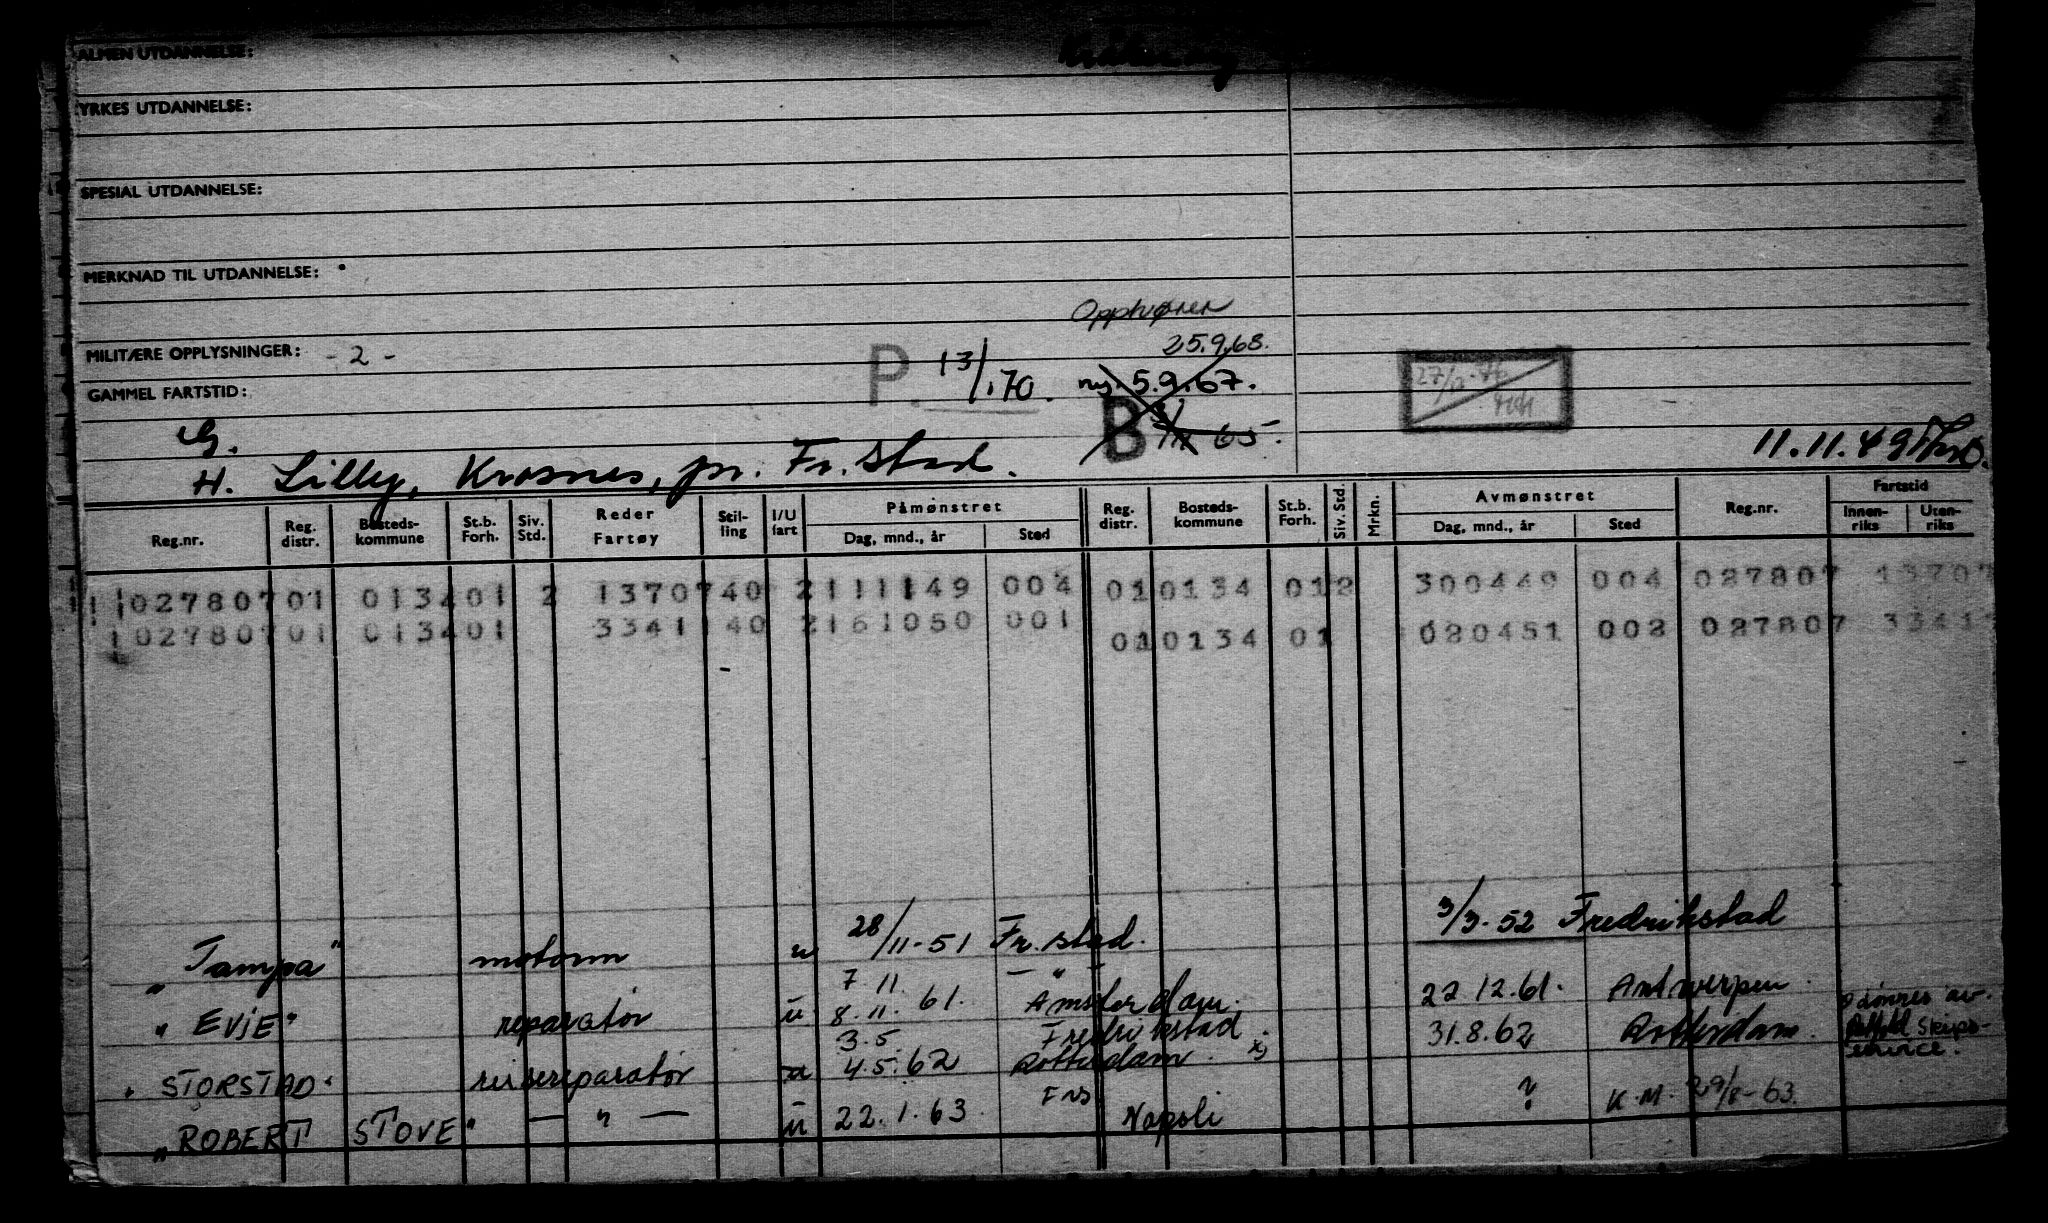 ALMEN UTDANNELSE:
YRKES UTDANNELSE:
SPESIAL UTDANNELSE:
MERKNAD TIL UTDANNELSE:
Opphører
25.9.68.
MILITÆRE OPPLYSNINGER: - 2 -
P. 13/1.70. ny. 5.9.67.
GAMMEL FARTSTID:
B 65.
G.
H. Lilly, Krosnes, pr. Fr.stad.
11.11.49
Reg.nr. Reg. distr. Bosteds-kommune St.b. Forh. Siv. Std. Reder Fartøy Stil-ling I/U fart Påmønstret Dag, mnd., år Sted Reg. distr. Bosteds-kommune St.b. Forh. Siv. Std. Mrkn. Avmønstret Dag, mnd., år Sted Reg.nr. Fartstid Innen-riks Uten-riks
1 1027807 01 0134 01 2 13707 40 2 111149 004 01 0134 01 2 300449 004 027807 13707
1027807 01 0134 01 33411 40 2 161050 001 01 0134 01 020451 002 027807 3341
"Tampa" motorm u 28/11-51 Fr.stad. 3/3.52 Fredrikstad
"EVJE" reparatør u 7.11. — " — 8.11.61. Amsterdam. 22.12.61. Antwerpen.
"STORSTAD" reisereparatør u 3.5. Fredrikstad 4.5.62 Rotterdam. x) 31.8.62 Rotterdam. x) lønnes av Skips-service.
"ROBERT STOVE" — " — u 22.1.63. Napoli ? K.M. 29/8-63.